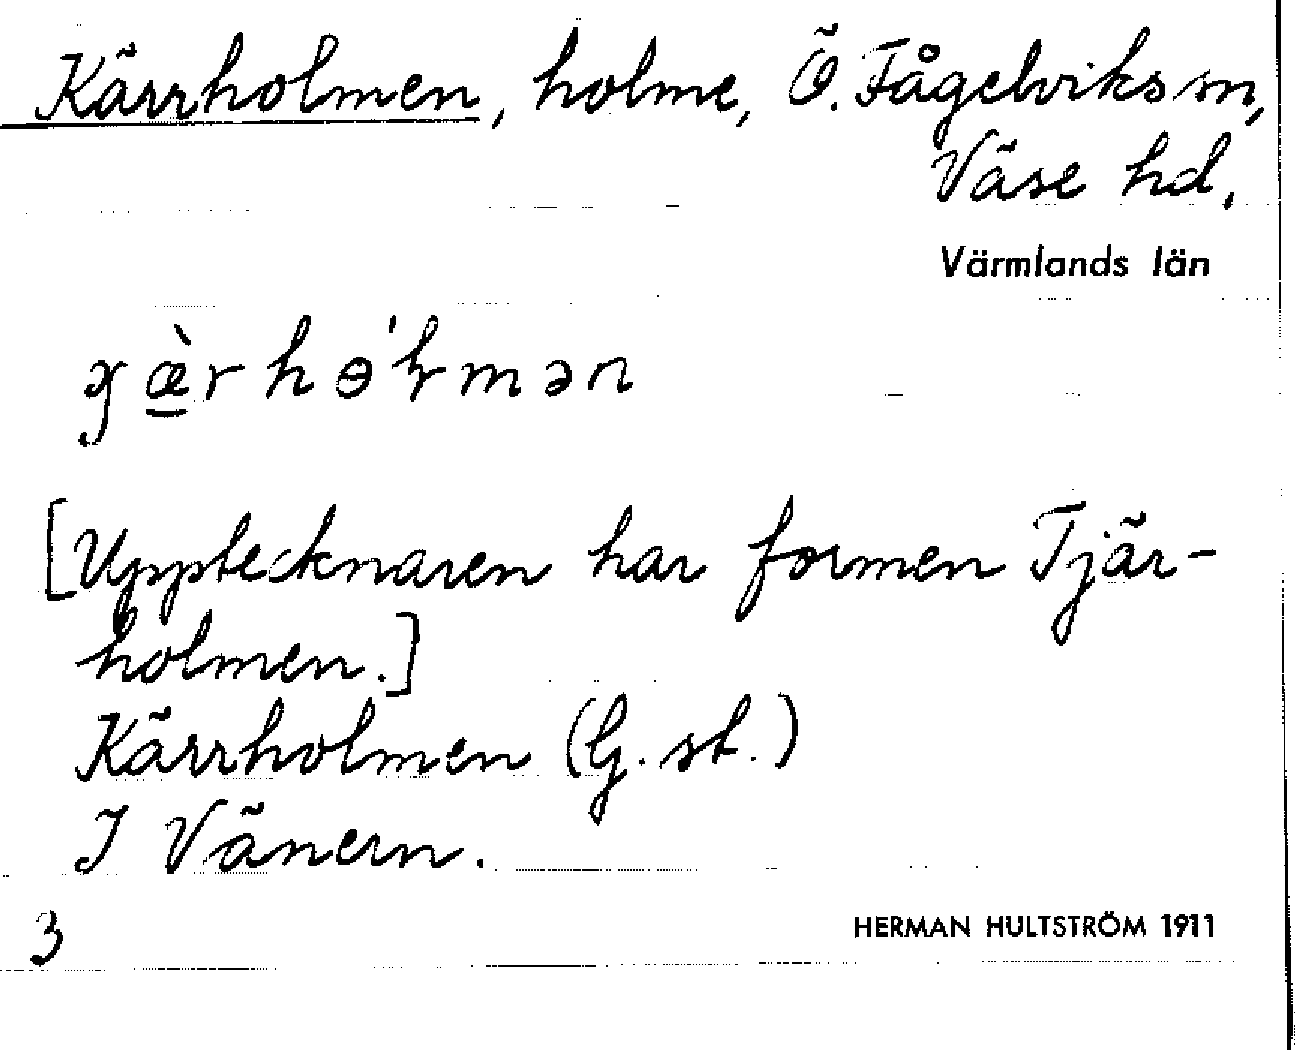 Kärrholmen, holme, Ö. Fågelviks sn,
Väse hd.
Värmlands län
[Upptecknaren har formen Tjär-
holmen.]
Kärrholmen (G. st.)
I Vänern.
3
HERMAN HULTSTRÖM 1911